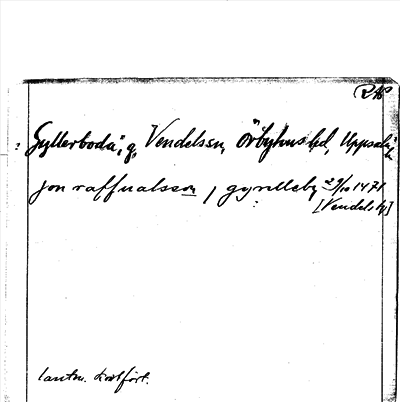 RA°
: "Gyllerboda", g, Vendelssn, Örbyhus hd, Uppsala l.
jon raffualsson, gyrilleby 29/10 1471
[Vendels by]
lantm. kartfört.